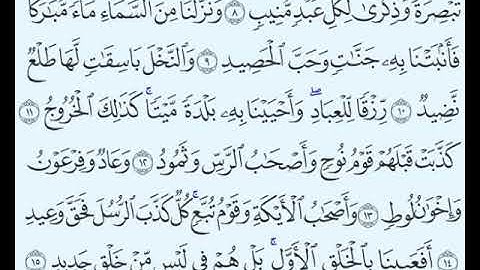 تَبْصِرَةً وَذِكْرَىٰ لِكُلِّ عَبْدٍ مُّنِيبٍ ٨ وَنَزَّلْنَا مِنَ السَّمَاءِ مَاءً مُّبَارَكًا
فَأَنۢبَتْنَا بِهِۦ جَنَّاتٍ وَحَبَّ الْحَصِيدِ ٩ وَالنَّخْلَ بَاسِقَاتٍ لَّهَا طَلْعٌ
نَّضِيدٌ ١٠ رِّزْقًا لِّلْعِبَادِ ۖ وَأَحْيَيْنَا بِهِۦ بَلْدَةً مَّيْتًا ۚ كَذَٰلِكَ الْخُرُوجُ ١١
كَذَّبَتْ قَبْلَهُمْ قَوْمُ نُوحٍ وَأَصْحَابُ الرَّسِّ وَثَمُودُ ١٢ وَعَادٌ وَفِرْعَوْنُ
وَإِخْوَانُ لُوطٍ ١٣ وَأَصْحَابُ الْأَيْكَةِ وَقَوْمُ تُبَّعٍ ۚ كُلٌّ كَذَّبَ الرُّسُلَ فَحَقَّ وَعِيدِ
١٤ أَفَعَيِينَا بِالْخَلْقِ الْأَوَّلِ ۚ بَلْ هُمْ فِي لَبْسٍ مِّنْ خَلْقٍ جَدِيدٍ ١٥